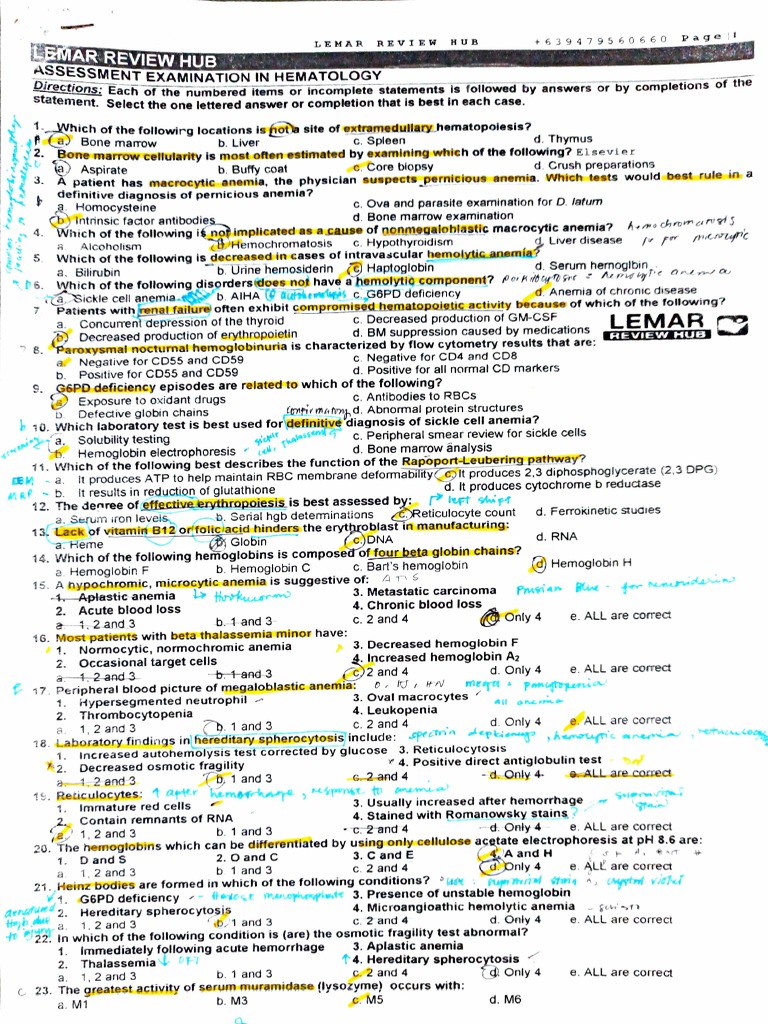 LEMAR REVIEW HUB +639479560660 Page | 1
LEMAR REVIEW HUB
ASSESSMENT EXAMINATION IN HEMATOLOGY
Directions: Each of the numbered items or incomplete statements is followed by answers or by completions of the
statement. Select the one lettered answer or completion that is best in each case.
1. Which of the following locations is not a site of extramedullary hematopoiesis?
a. Bone marrow b. Liver c. Spleen d. Thymus
2. Bone marrow cellularity is most often estimated by examining which of the following? Elsevier
a. Aspirate b. Buffy coat c. Core biopsy d. Crush preparations
3. A patient has macrocytic anemia, the physician suspects pernicious anemia. Which tests would best rule in a
definitive diagnosis of pernicious anemia?
a. Homocysteine c. Ova and parasite examination for D. latum
b. Intrinsic factor antibodies d. Bone marrow examination
4. Which of the following is not implicated as a cause of nonmegaloblastic macrocytic anemia? hemochromatosis
a. Alcoholism b. Hemochromatosis c. Hypothyroidism d. Liver disease for microcytic
5. Which of the following is decreased in cases of intravascular hemolytic anemia?
a. Bilirubin b. Urine hemosiderin c. Haptoglobin d. Serum hemoglbin
6. Which of the following disorders does not have a hemolytic component? hemolytic anemia
a. Sickle cell anemia b. AIHA c. G6PD deficiency d. Anemia of chronic disease
7 Patients with renal failure often exhibit compromised hematopoietic activity because of which of the following?
a. Concurrent depression of the thyroid c. Decreased production of GM-CSF
b. Decreased production of erythropoietin d. BM suppression caused by medications
LEMAR
REVIEW HUB
8. Paroxysmal nocturnal hemoglobinuria is characterized by flow cytometry results that are:
a. Negative for CD55 and CD59 c. Negative for CD4 and CD8
b. Positive for CD55 and CD59 d. Positive for all normal CD markers
9. G6PD deficiency episodes are related to which of the following?
a. Exposure to oxidant drugs c. Antibodies to RBCs
b. Defective globin chains d. Abnormal protein structures
confirmatory
10. Which laboratory test is best used for definitive diagnosis of sickle cell anemia?
screening a. Solubility testing c. Peripheral smear review for sickle cells
b. Hemoglobin electrophoresis d. Bone marrow analysis
11. Which of the following best describes the function of the Rapoport-Leubering pathway?
EMP a. It produces ATP to help maintain RBC membrane deformability c. It produces 2,3 diphosphoglycerate (2,3 DPG)
MRP b. It results in reduction of glutathione d. It produces cytochrome b reductase
12. The denree of effective erythropoiesis is best assessed by: left shift
a. Serum iron levels b. Serial hgb determinations c. Reticulocyte count d. Ferrokinetic studies
13. Lack of vitamin B12 or folic acid hinders the erythroblast in manufacturing:
a. Heme b. Globin c. DNA d. RNA
14. Which of the following hemoglobins is composed of four beta globin chains?
a. Hemoglobin F b. Hemoglobin C c. Bart's hemoglobin d. Hemoglobin H
15. A hypochromic, microcytic anemia is suggestive of:
1. Aplastic anemia Hookworm 3. Metastatic carcinoma Prussian Blue - for hemosiderin
2. Acute blood loss 4. Chronic blood loss
a. 1, 2 and 3 b. 1 and 3 c. 2 and 4 d. Only 4 e. ALL are correct
16. Most patients with beta thalassemia minor have:
1. Normocytic, normochromic anemia 3. Decreased hemoglobin F
2. Occasional target cells 4. Increased hemoglobin A2
a. 1, 2 and 3 b. 1 and 3 c. 2 and 4 d. Only 4 e. ALL are correct
17. Peripheral blood picture of megaloblastic anemia: mega = pancytopenia
1. Hypersegmented neutrophil 3. Oval macrocytes all anemia
2. Thrombocytopenia 4. Leukopenia
a. 1, 2 and 3 b. 1 and 3 c. 2 and 4 d. Only 4 e. ALL are correct
18. Laboratory findings in hereditary spherocytosis include: hemolytic anemia
1. Increased autohemolysis test corrected by glucose 3. Reticulocytosis
2. Decreased osmotic fragility 4. Positive direct antiglobulin test
a. 1, 2 and 3 b. 1 and 3 c. 2 and 4 d. Only 4 e. ALL are correct
19. Reticulocytes: ↑ after hemorrhage, response to anemia
1. Immature red cells 3. Usually increased after hemorrhage supravital stain
2. Contain remnants of RNA 4. Stained with Romanowsky stains
a. 1, 2 and 3 b. 1 and 3 c. 2 and 4 d. Only 4 e. ALL are correct
20. The hemoglobins which can be differentiated by using only cellulose acetate electrophoresis at pH 8.6 are:
1. D and S 2. O and C 3. C and E 4. A and H
a. 1, 2 and 3 b. 1 and 3 c. 2 and 4 d. Only 4 e. ALL are correct
21. Heinz bodies are formed in which of the following conditions? supravital stain, crystal violet
1. G6PD deficiency 3. Presence of unstable hemoglobin
2. Hereditary spherocytosis 4. Microangioathic hemolytic anemia
a. 1, 2 and 3 b. 1 and 3 c. 2 and 4 d. Only 4 e. ALL are correct
22. In which of the following condition is (are) the osmotic fragility test abnormal?
1. Immediately following acute hemorrhage 3. Aplastic anemia
2. Thalassemia ↓ OFT ↑ 4. Hereditary spherocytosis
a. 1, 2 and 3 b. 1 and 3 c. 2 and 4 d. Only 4 e. ALL are correct
C 23. The greatest activity of serum muramidase (lysozyme) occurs with:
a. M1 b. M3 c. M5 d. M6